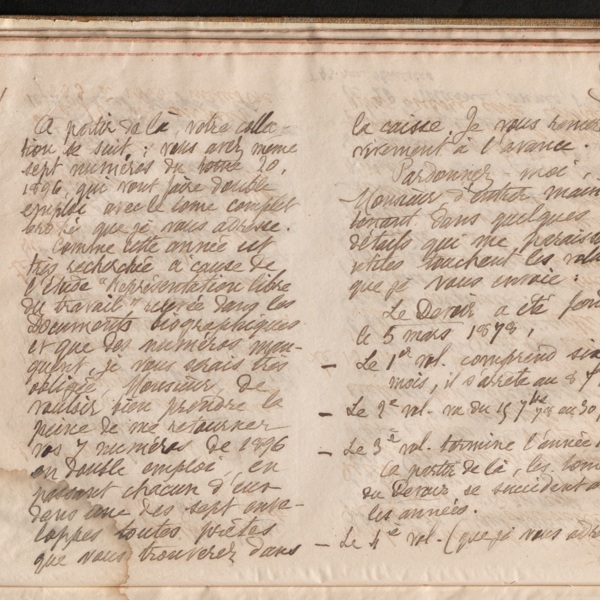 A partir de là, votre colla-
tion se suit : vous avez même
sept numéros du tome 20,
1896, qui vont faire double
emploi avec le tome complet
broché que je vous adresse.
Comme cette année est
très recherchée à cause de
l'Etude "Représentation libre
du travail" relevée dans les
Documents biographiques
et que des numéros man-
quent, je vous serais très
obligée, Monsieur, de
vouloir bien prendre la
peine de me retourner
vos 7 numéros de 1896
en double emploi, en
passant chacun d'eux
dans une des sept enve-
loppes toutes prêtes
que vous trouverez dans
la caisse. Je vous
vivement à l'avance.
Pardonnez-moi,
Monsieur d'entrer main
tenant dans quelques
détails qui me
utiles touchant les
que je vous envoie :
Le Devoir a été
le 5 mars 1878,
- Le 1er vol. comprend six
mois, il s'arrête au 8 7
- Le 2e vol. va du 15 7bre 78 au 30
- Le 3e vol. termine l'année
A partir de là, les
du Devoir se succèdent
les années.
- Le 4e vol. (que je vous